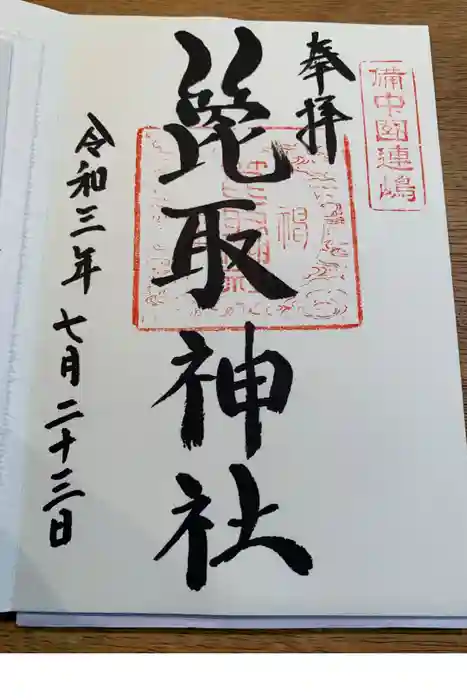 備中國連嶋
奉拝
箆取神社
令和三年七月二十三日